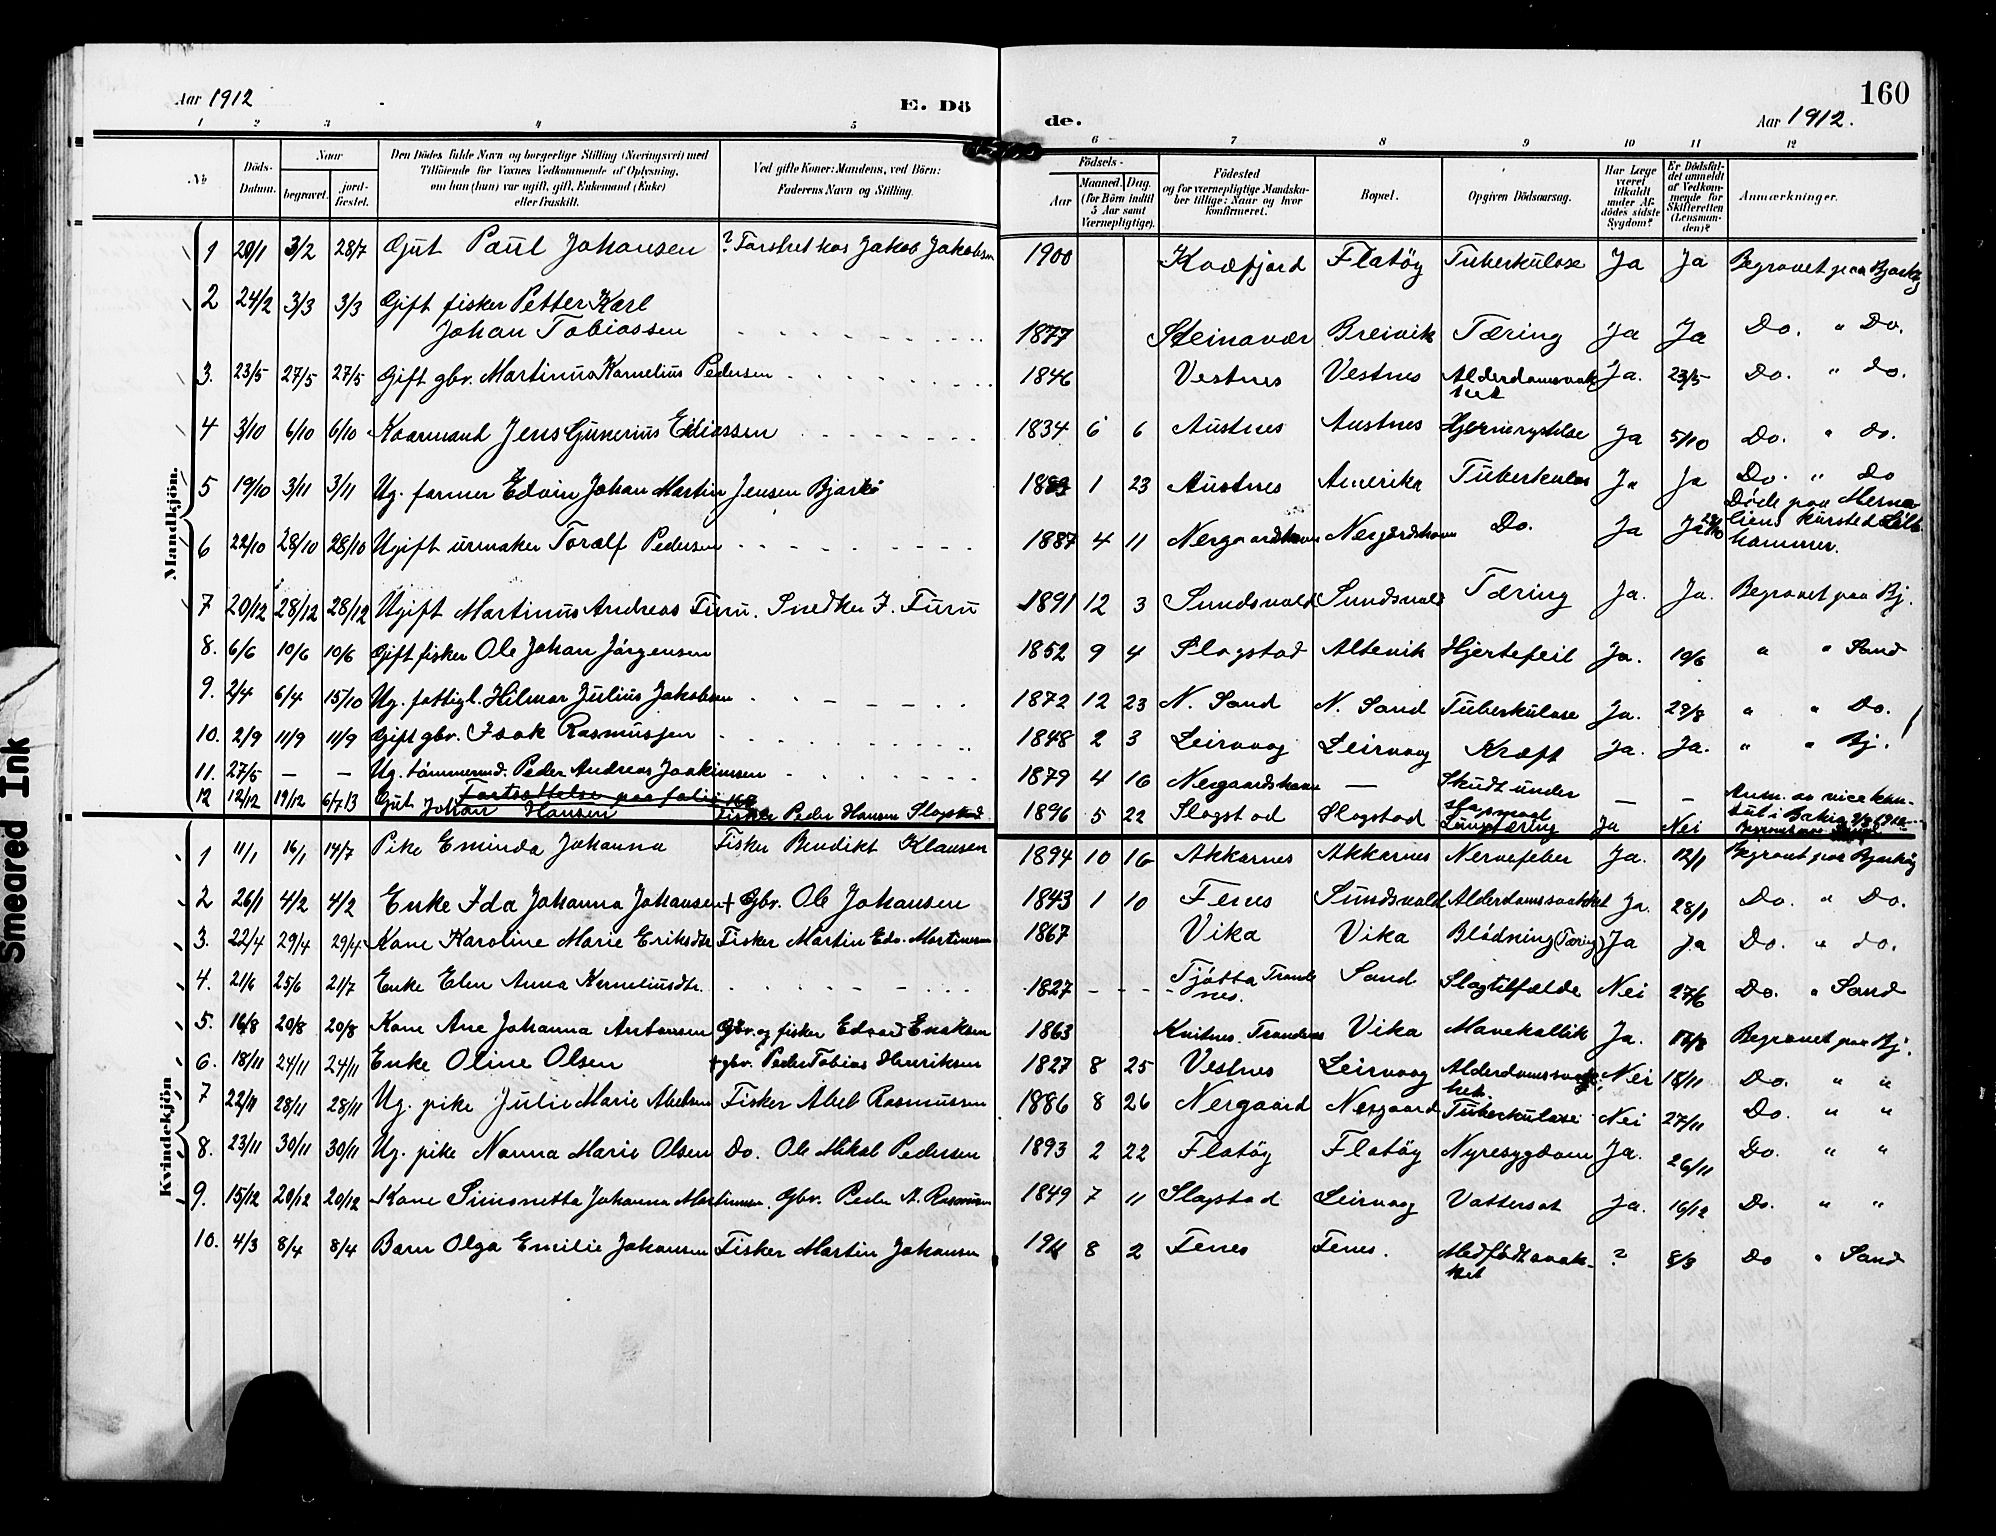 Aar 1912
E. Dö
de.
Aar 1912.
160
1 2 3 4 5 6 7 8 9 10 11 12
No
Döds-Datum.
Naar
begravet.
jord-fæstet.
Den Dödes fulde Navn og borgerlige Stilling (Næringsvei) med
Tilföiende for Voxnes Vedkommende af Oplysning,
om han (hun) var ugift, gift, Enkemand (Enke)
eller fraskilt.
Ved gifte Koner: Mandens, ved Börn:
Faderens Navn og Stilling.
Födsels-
Aar
Maaned. Dag.
(for Börn indtil
5 Aar samt
Værnepligtige).
Födested
og for værnepligtige Mandska-
ber tillige: Naar og hvor
konfirmeret.
Bopæl.
Opgiven Dödsaarsag.
Har Læge
været
tilkaldt
under Af-
dödes sidste
Sygdom?
Er Dödsfal-
det anmeldt
af Vedkom-
mende for
Skifteretten
(Lensman-
den)?
Anmærkninger.
Mandkjön.
1 20/1 3/2 28/7 Gut Paul Johansen ? Forstret hos Jakob Jakobsen 1900 Kvæfjord Flatöy Tuberkulose Ja Ja Begravet paa Bjarköy
2 24/2 3/3 3/3 Gift fisker Petter Karl
Johan Tobiassen 1877 Steinavær Breivik Tæring Ja Ja Do. " Do.
3. 23/5 27/5 27/5 Gift gbr. Martinus Kornelius Pedersen 1846 Vestnes Vestnes Alderdomssvak
het Ja. 23/5 Do. " do.
4 3/10 6/10 6/10 Kaarmand Jens Gunerius Eliassen 1834 6 6 Austnes Austnes Hjernerystelse Ja 5/10 Do. " do.
5 19/10 3/11 3/11 Ug. farmer Edvin Johan Martin Jensen Bjarkö 1 23 Austnes Amerika Tuberkulos Ja Ja Do. " Do
6 22/10 28/10 28/10 Ugift urmaker Toralf Pedersen 1887 4 11 Nergaardshavn Nergårdshavn Do. Ja Ja Döde paa Mesna
liens kursted Lille
hammer.
7 20/12 28/12 28/12 Ugift Martinus Andreas Furu. Snedker J. Furu 1891 12 3 Sundsvold Sundsvold Tæring Ja. Ja. Begravet paa Bj.
8. 6/6 10/6 10/6 Gift fisker Ole Johan Jörgensen 1852 9 4 Slogstad Altevik Hjertefeil Ja. 10/6 " " Sand
9. 2/4 6/4 15/10 Ug. fattigl. Hilmar Julius Jakobsen 1872 12 23 N. Sand N. Sand Tuberkulose Ja. 29/8 " " Do.
10. 2/9 11/9 11/9 Gift gbr. Isak Rasmussen 1848 2 3 Leirvaag Leirvaag Kræft Ja. Ja. " " Bj.
11. 27/5 — — Ug. tömmermd. Peder Andreas Joakimsen 1879 4 16 Nergaardshavn — Skudt under
slagsmaal — — Anm. av vicekon-
sul i Bahia
Fortsættelse paa folio
12 12/12 19/12 6/7 13 Gut Johan Hansen Fisker Peder Hansen Slogstad 1896 5 22 Slogstad Slogstad Lungetæring Ja Nei
Kvindekjön
1 11/1 16/1 14/7 Pike Eminda Johanna Fisker Bendikt Klausen 1894 10 16 Akkarnes Akkarnes Nervefeber Ja. 12/1 Begravet paa Bjarköy
2 26/1 4/2 4/2 Enke Ida Johanna Johansen + Gbr. Ole Johansen 1843 1 10 Fenes Sundsvold Alderdomssvakhet Ja. 28/1 Do. " Do.
3. 22/4 29/4 29/4 Kone Karoline Marie Eriksdtr Fisker Martin Edv. Martinsen 1867 Vika Vika Blödning (Tæring) Ja Ja Do. " do.
4. 21/6 25/6 21/7 Enke Elen Anna Korneliusdtr. 1827 - - Tjötta Tronde
nes. Sand Slagtilfælde Nei 27/6 Do. " Sand
5. 16/8 20/8 20/8 Kone Ane Johanna Antonsen Gbr. og fisker Edvard Enoksen 1863 Kvitnes. Trondenes Vika Mavekollik Ja. 17/8 Begravet paa Bj.
6. 18/11 24/11 24/11 Enke Oline Olsen + gbr. Peder Tobias Henriksen 1827 8 25 Vestnes Leirvaag Alderdomssvag-
het. Nei 18/11 Do. " "
7 22/11 28/11 28/11 Ug. pike Julie Marie Abelsen Fisker Abel Rasmussen 1886 8 26 Nergaard Nergaard Tuberkulose Nei 27/11 Do. " "
8. 23/11 30/11 30/11 Ug. pike Nanna Marie Olsen Do. Ole Mikal Pedersen 1893 2 22 Flatöy Flatöy Nyresygdom Ja. 26/11 Do. " "
9. 15/12 20/12 20/12 Kone Simonetta Johanna Martinsen. Gbr. Peder A. Rasmussen 1849 7 11 Slogstad Leirvaag Vattersot Ja. 16/12 Do. " "
10. 4/3 8/4 8/4 Barn Olga Emilie Johansen Fisker Martin Johansen 1911 8 2 Fenes Fenes. Medfödt svak-
het ? 8/3 Do " Sand
Smeared Ink